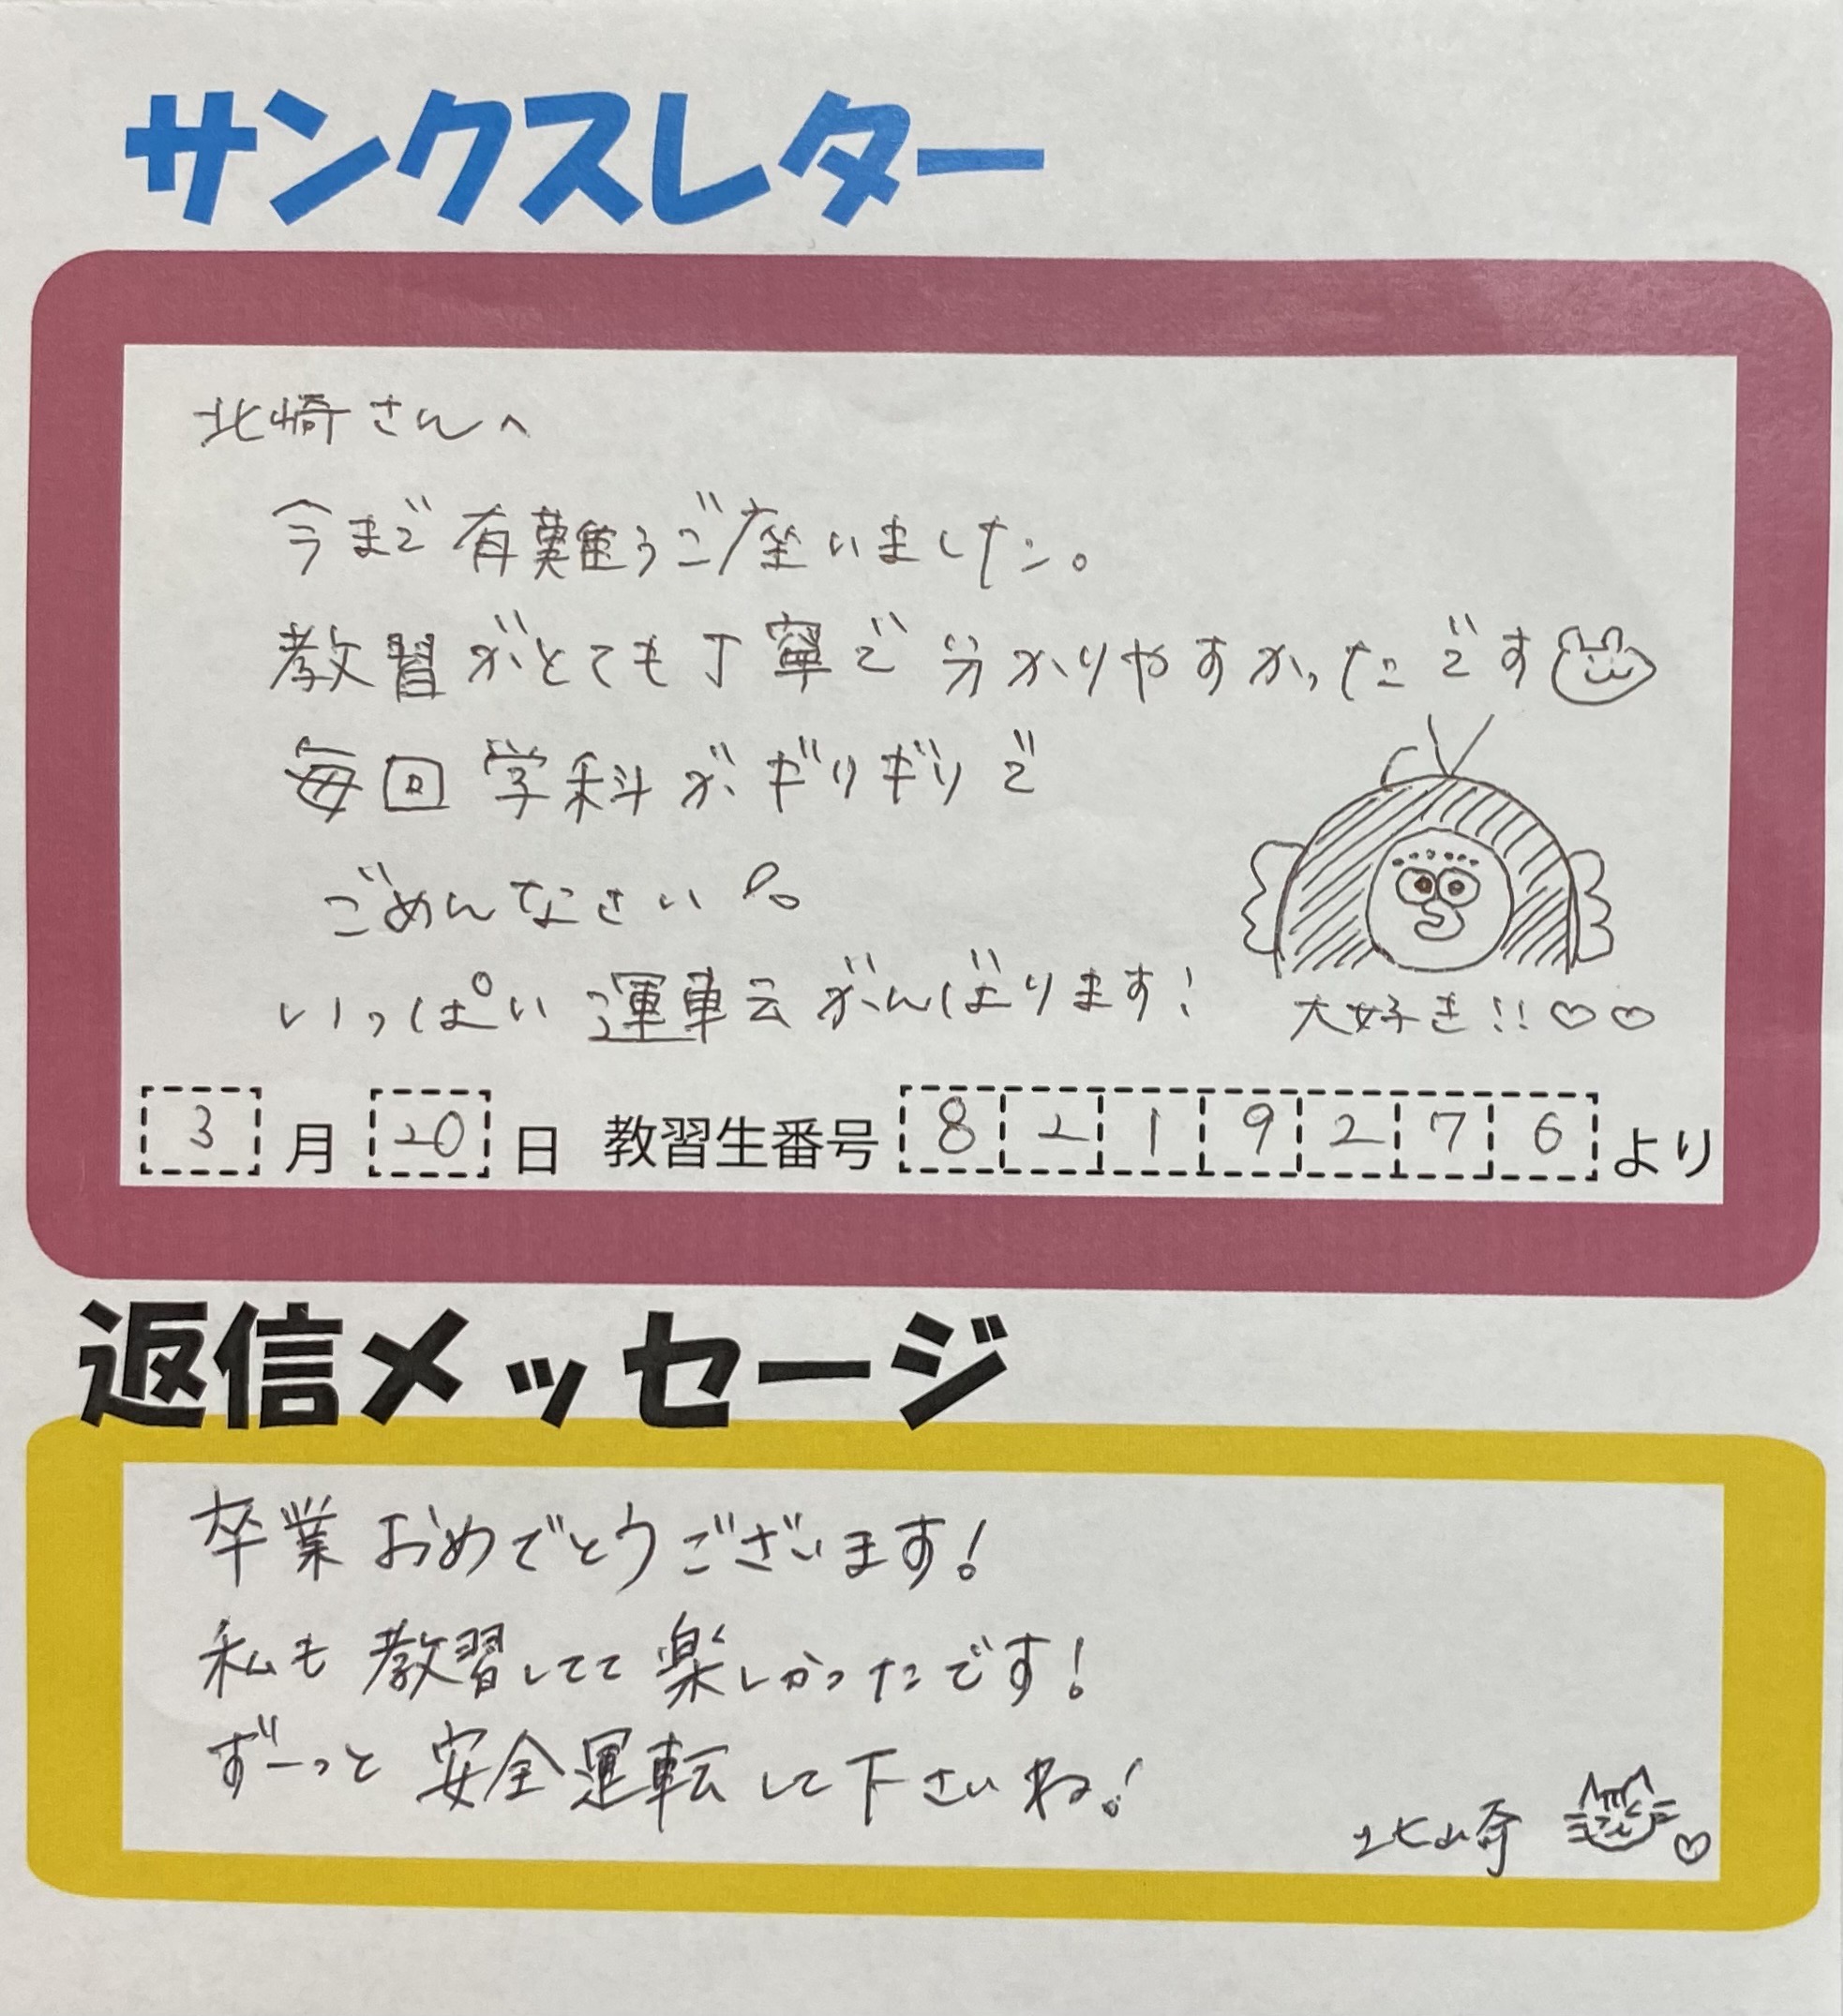 サンクスレター
北崎さんへ
今まで有難うご座いました。
教習がとても丁寧で分かりやすかったです
毎回学科がギリギリで
ごめんなさい
いっぱい運転がんばります!
大好き!!♡♡
3月20日 教習生番号 8219276より
返信メッセージ
卒業おめでとうございます!
私も教習してて楽しかったです!
ずーっと安全運転して下さいね!
北崎 ♡